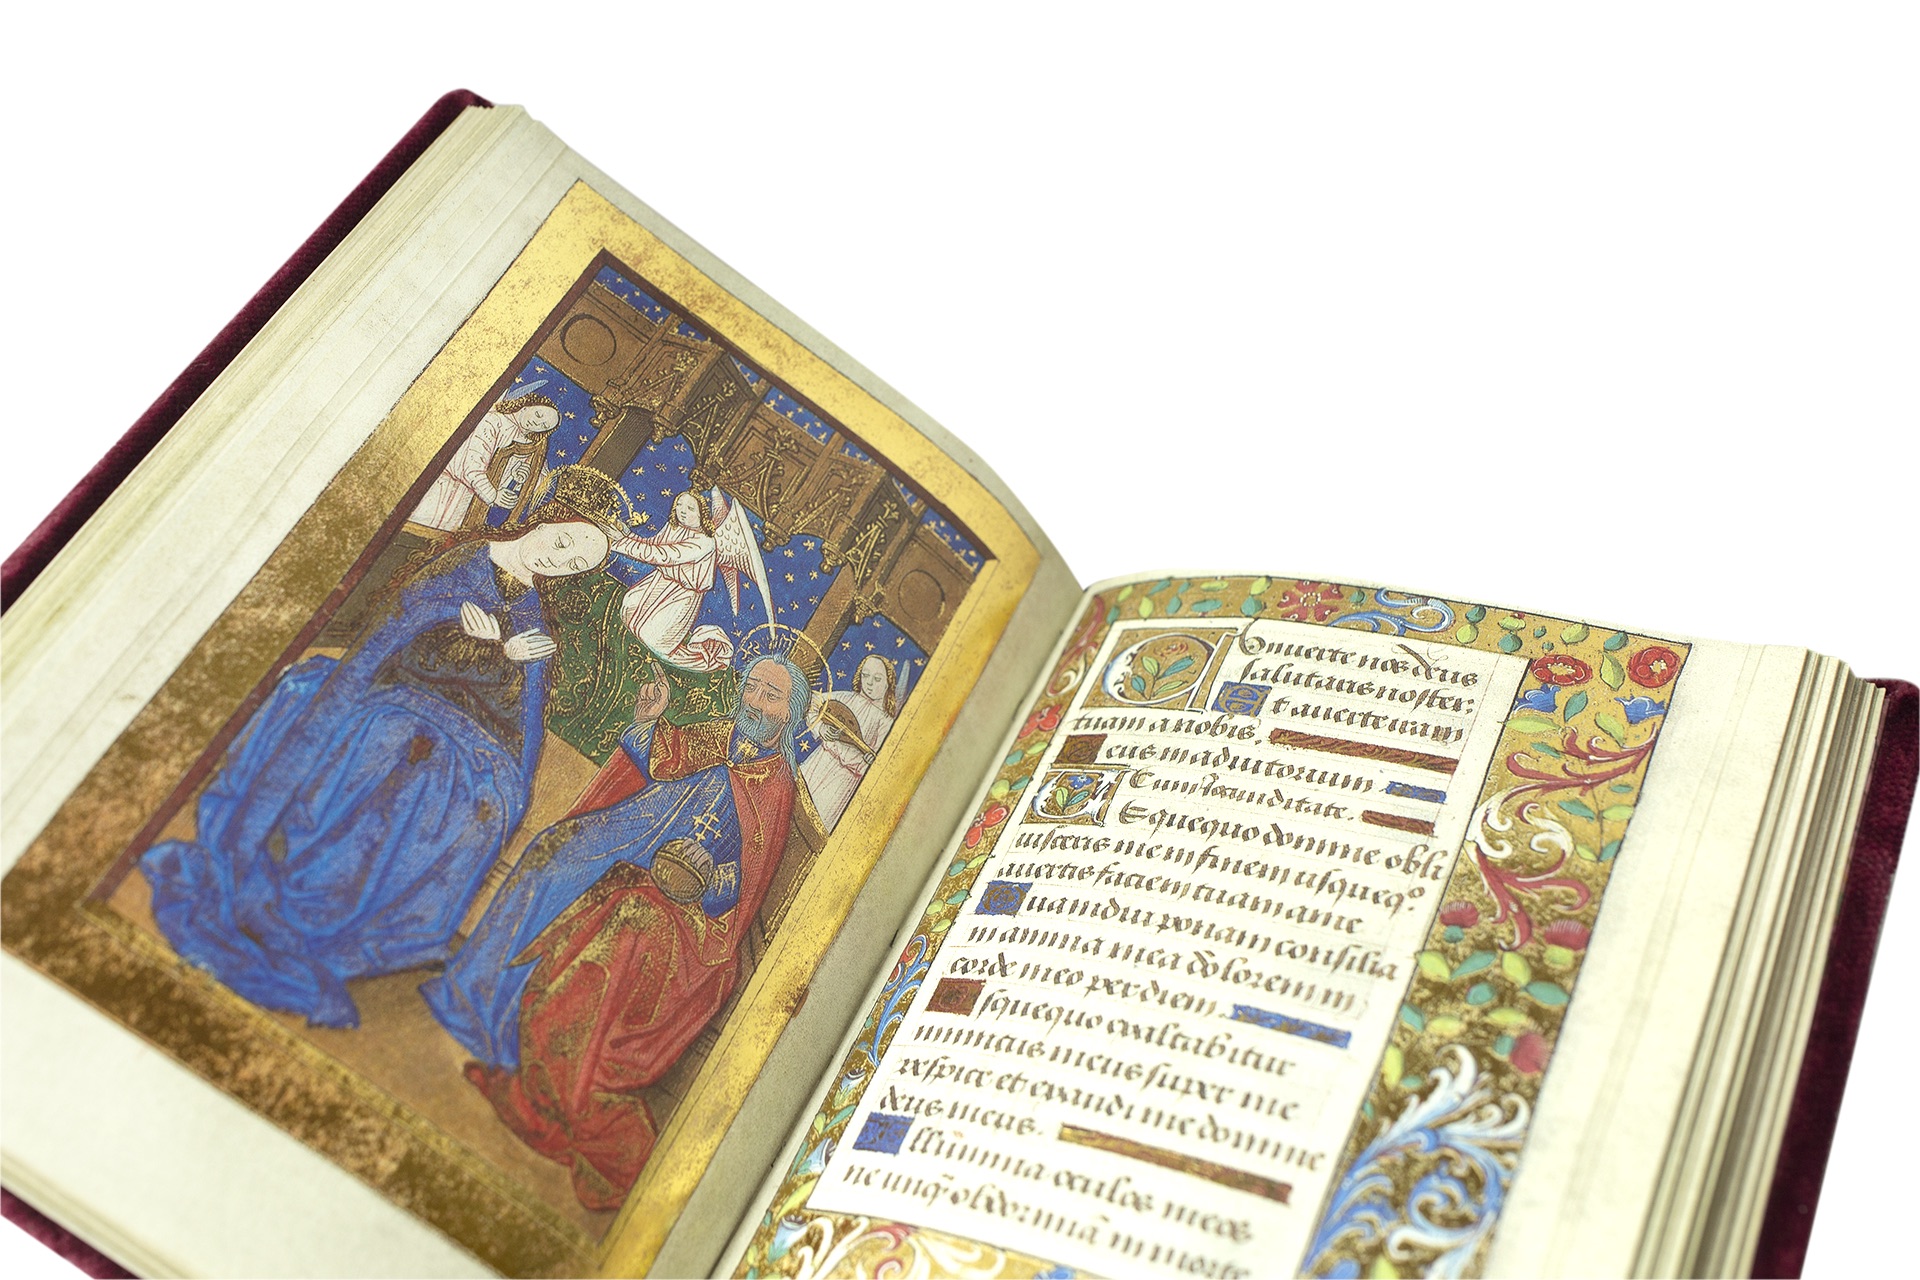 Conuerte nos deus
salutaris noster.
Et auerte iram
tuam a nobis.
Deus in adiutorium
Cum iocunditate.
Usquequo domine obli
uisceris me in finem usquequo
auertis faciem tuam a me
Quamdiu ponam consilia
in anima mea dolorem in
corde meo per diem.
Usquequo exaltabitur
inimicus meus super me
respice et exaudi me domine
deus meus.
Illumina oculos meos
ne unq̃ obdormiã in morte